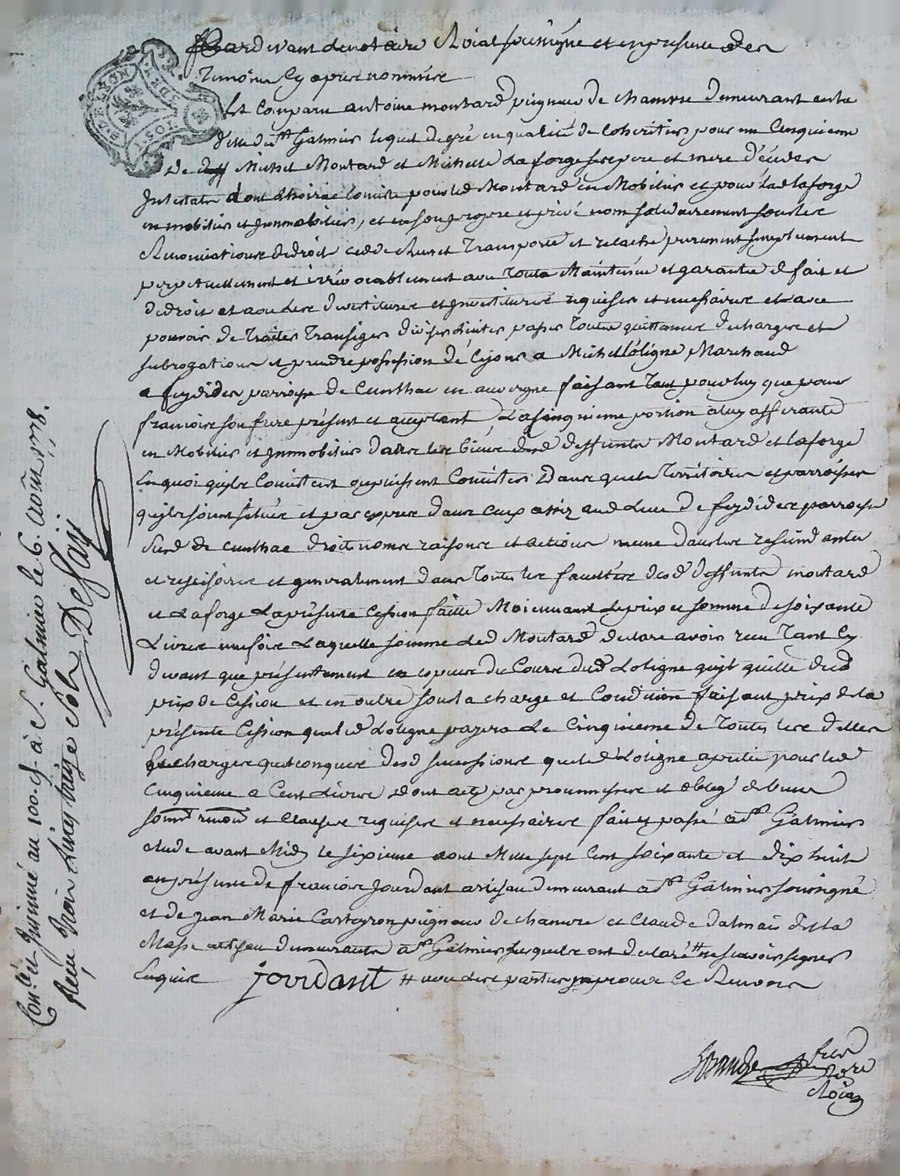 Pardevant le notaire Roial soussigné et en presence des
Temoins Cy apres nommés
Est Comparu antoine montard peigneur de chamvre demeurant en cette
ville de St Galmier lequel de gré en qualité de Coheritier pour un Cinquieme
De Michel Montard et Michelle Laforge ses pere et mere décédés
Intestats dont L'hoirie Consiste pour led Montard en Mobilier et pour lad laforge
en mobilier et immobilier, et en son propre et privé nom solidairement sous les
Renonciations de droit cede Remet Transporte et relache purement simplement
perpetuellement et irrévocablement avec Toute Maintenüe et garantie de fait et
de droit et aou les devetitures et investitures requises et necessaires et avec
pouvoir de Traiter Transiger passer Toutes quittances decharges et
subrogations et prendre possession de Cejour a Michel Lóligne Marchand
a feydides parroisse de Cunlhac en auvergne faisant Tant pour luy que pour
francois son frere présent et acceptant, La cinquieme portion a luy afferante
en Mobilier et immobilier dans les biens desd deffunts Montard et Laforge
En quoi qu'ils Consistent ou puissent Consister Dans quels Territoires et parroisses
qu'ils soient situés et par exprès dans ceux assiz aud Lieu de feydides parroisse
dud de Cunlhac droits noms raisons et actions meme dans les rescindants
et rescisoires et generalement dans Toutes les facultés desd deffunts montard
et Laforge La présente Cession faitte Moiennant le prix et somme de soixante
Livres Laquelle somme led Montard declare avoir recu Tant Cy
devant que présentement en especes du Cours dud Loligne quil quitte dud
prix de Cession et en outre sous la charge et Condition faisant prix de la
présente Cession que led Loligne payera Le Cinquieme de Toutes les dettes
et Charges quelconques desd successions que led Loligne apretie pour led
Cinquieme a Cent Livres Dont acte par promesses et obligé de biens
soumons renons et Clauses requises et necessaires fait et passé a St Galmier
etude avant Midy le sixieme aout Mille sept Cent soixante et dix huit
en présence de francois Jourdant artisan demeurant a St Galmier soussigné
et de Jean Marie Carteyron peigneur de chanvre et Claude dalmais dit la
Masse artisan demeurants a St Galmier lesquels ont declaré ne scavoir signer
Enquis Jourdant # nous dire parties approuvé Le Renvoi
nore
Roial
Conlé et Insinué au 100. à S. Galmier le 6. Août 1778.
Reçu trois Livres treize Sols Defay